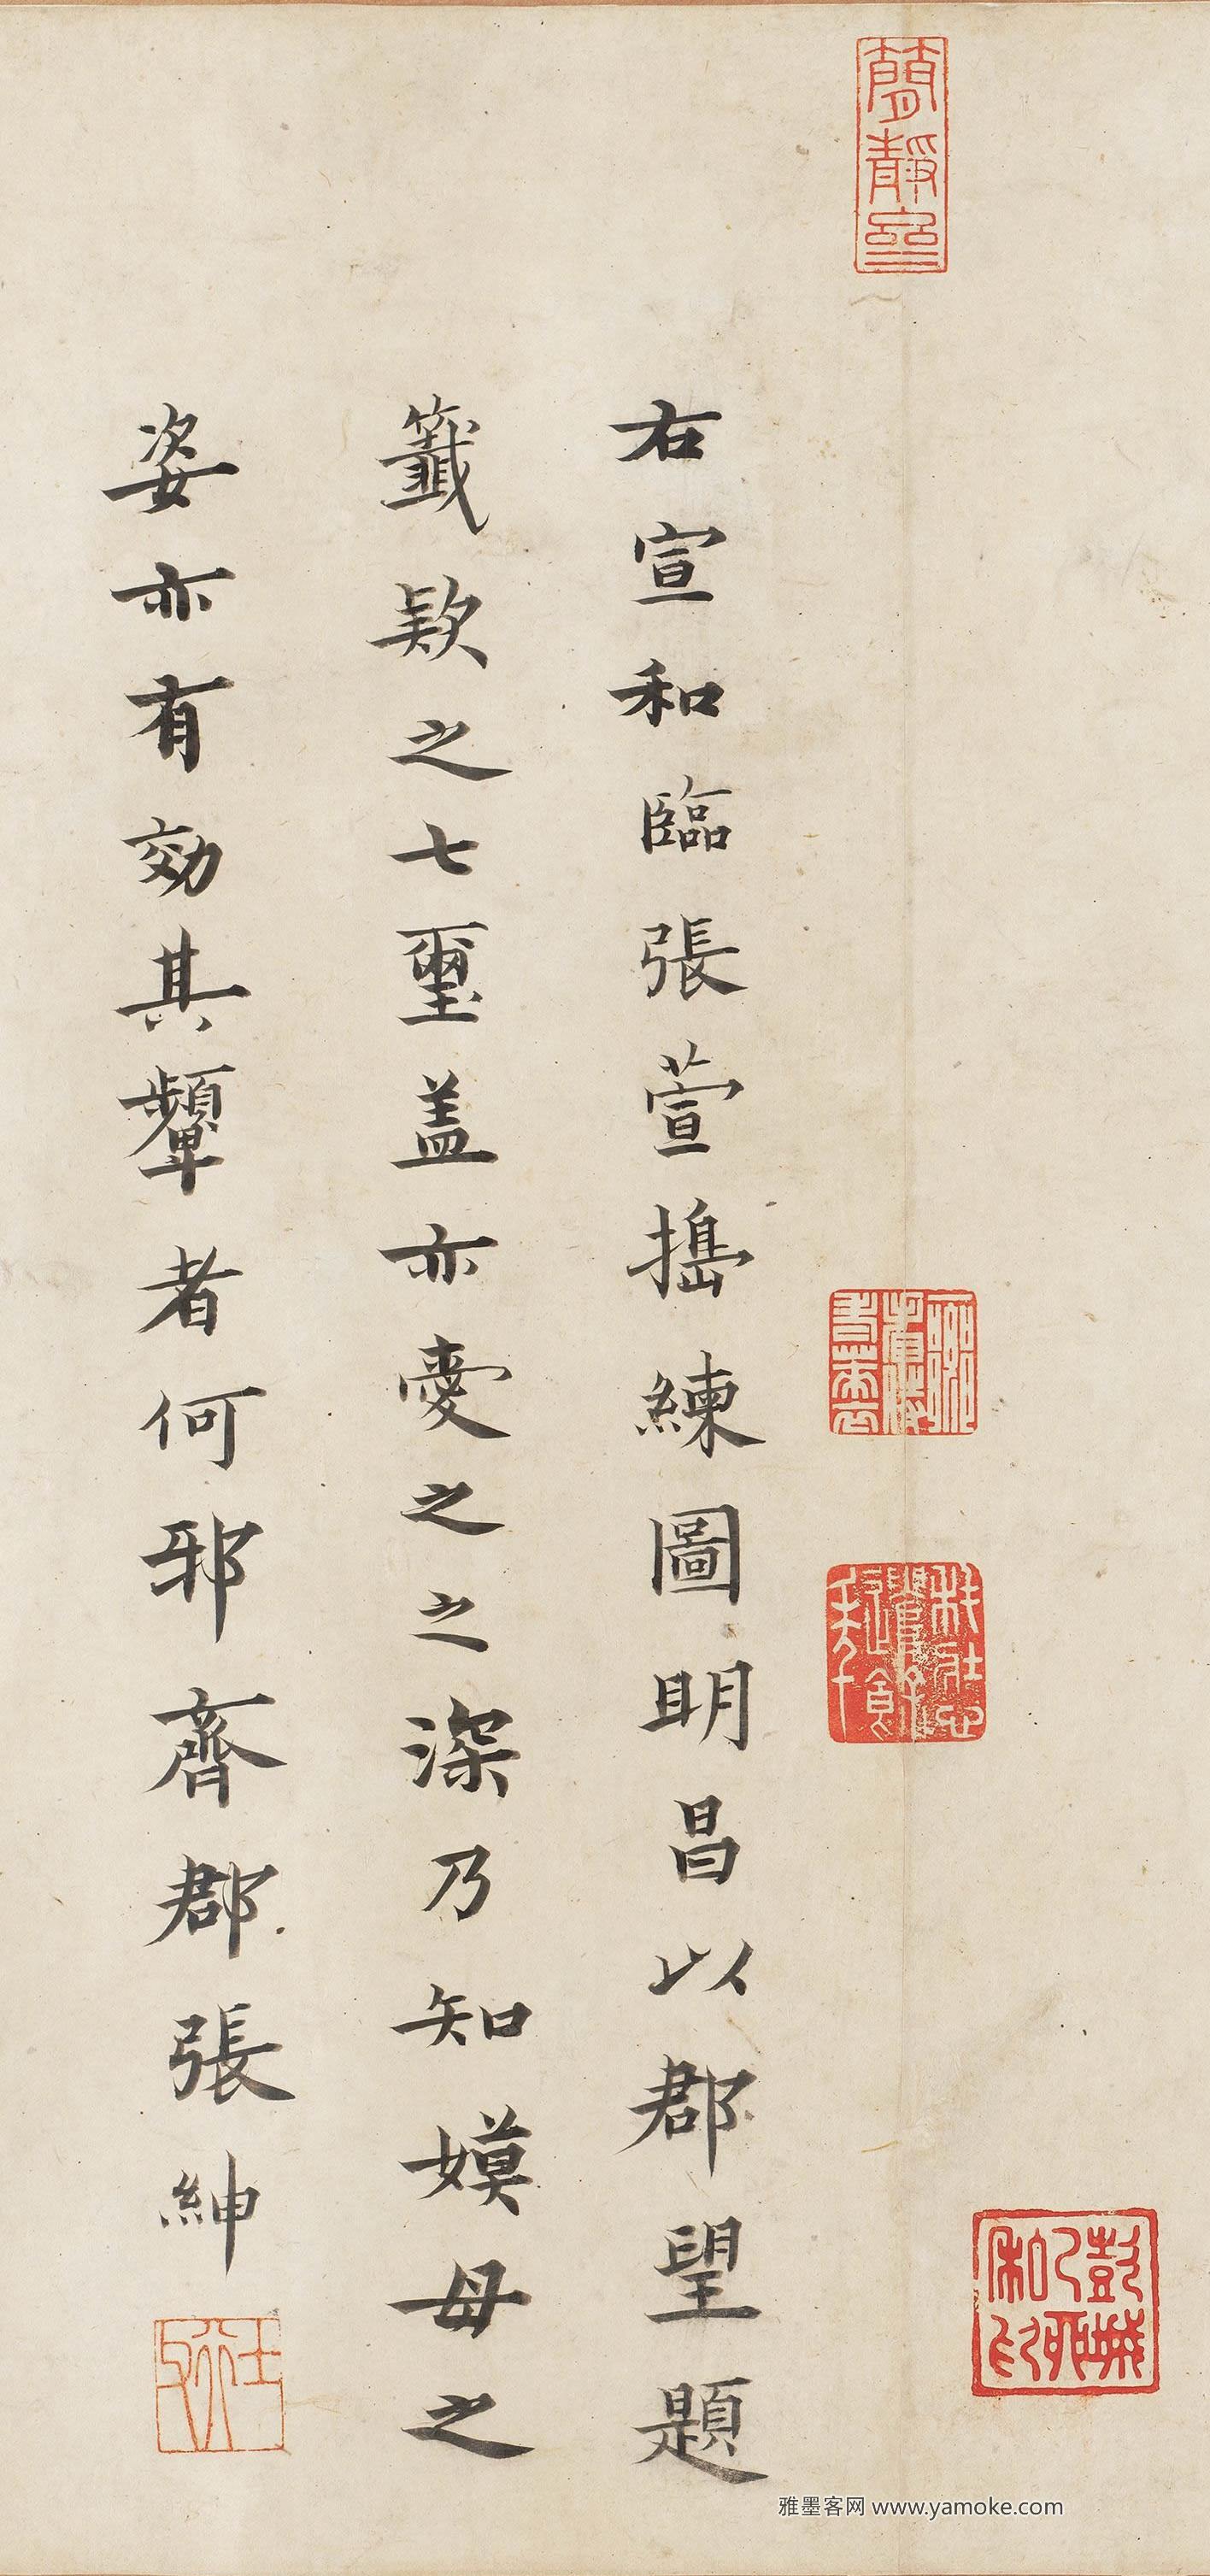 右宣和臨張萱搗練圖明昌以郡望題
籤欵之七璽盖亦愛之之深乃知嫫母之
姿亦有効其顰者何邪齊郡張紳
簡靜齋
士行
雅墨客网 www.yamoke.com